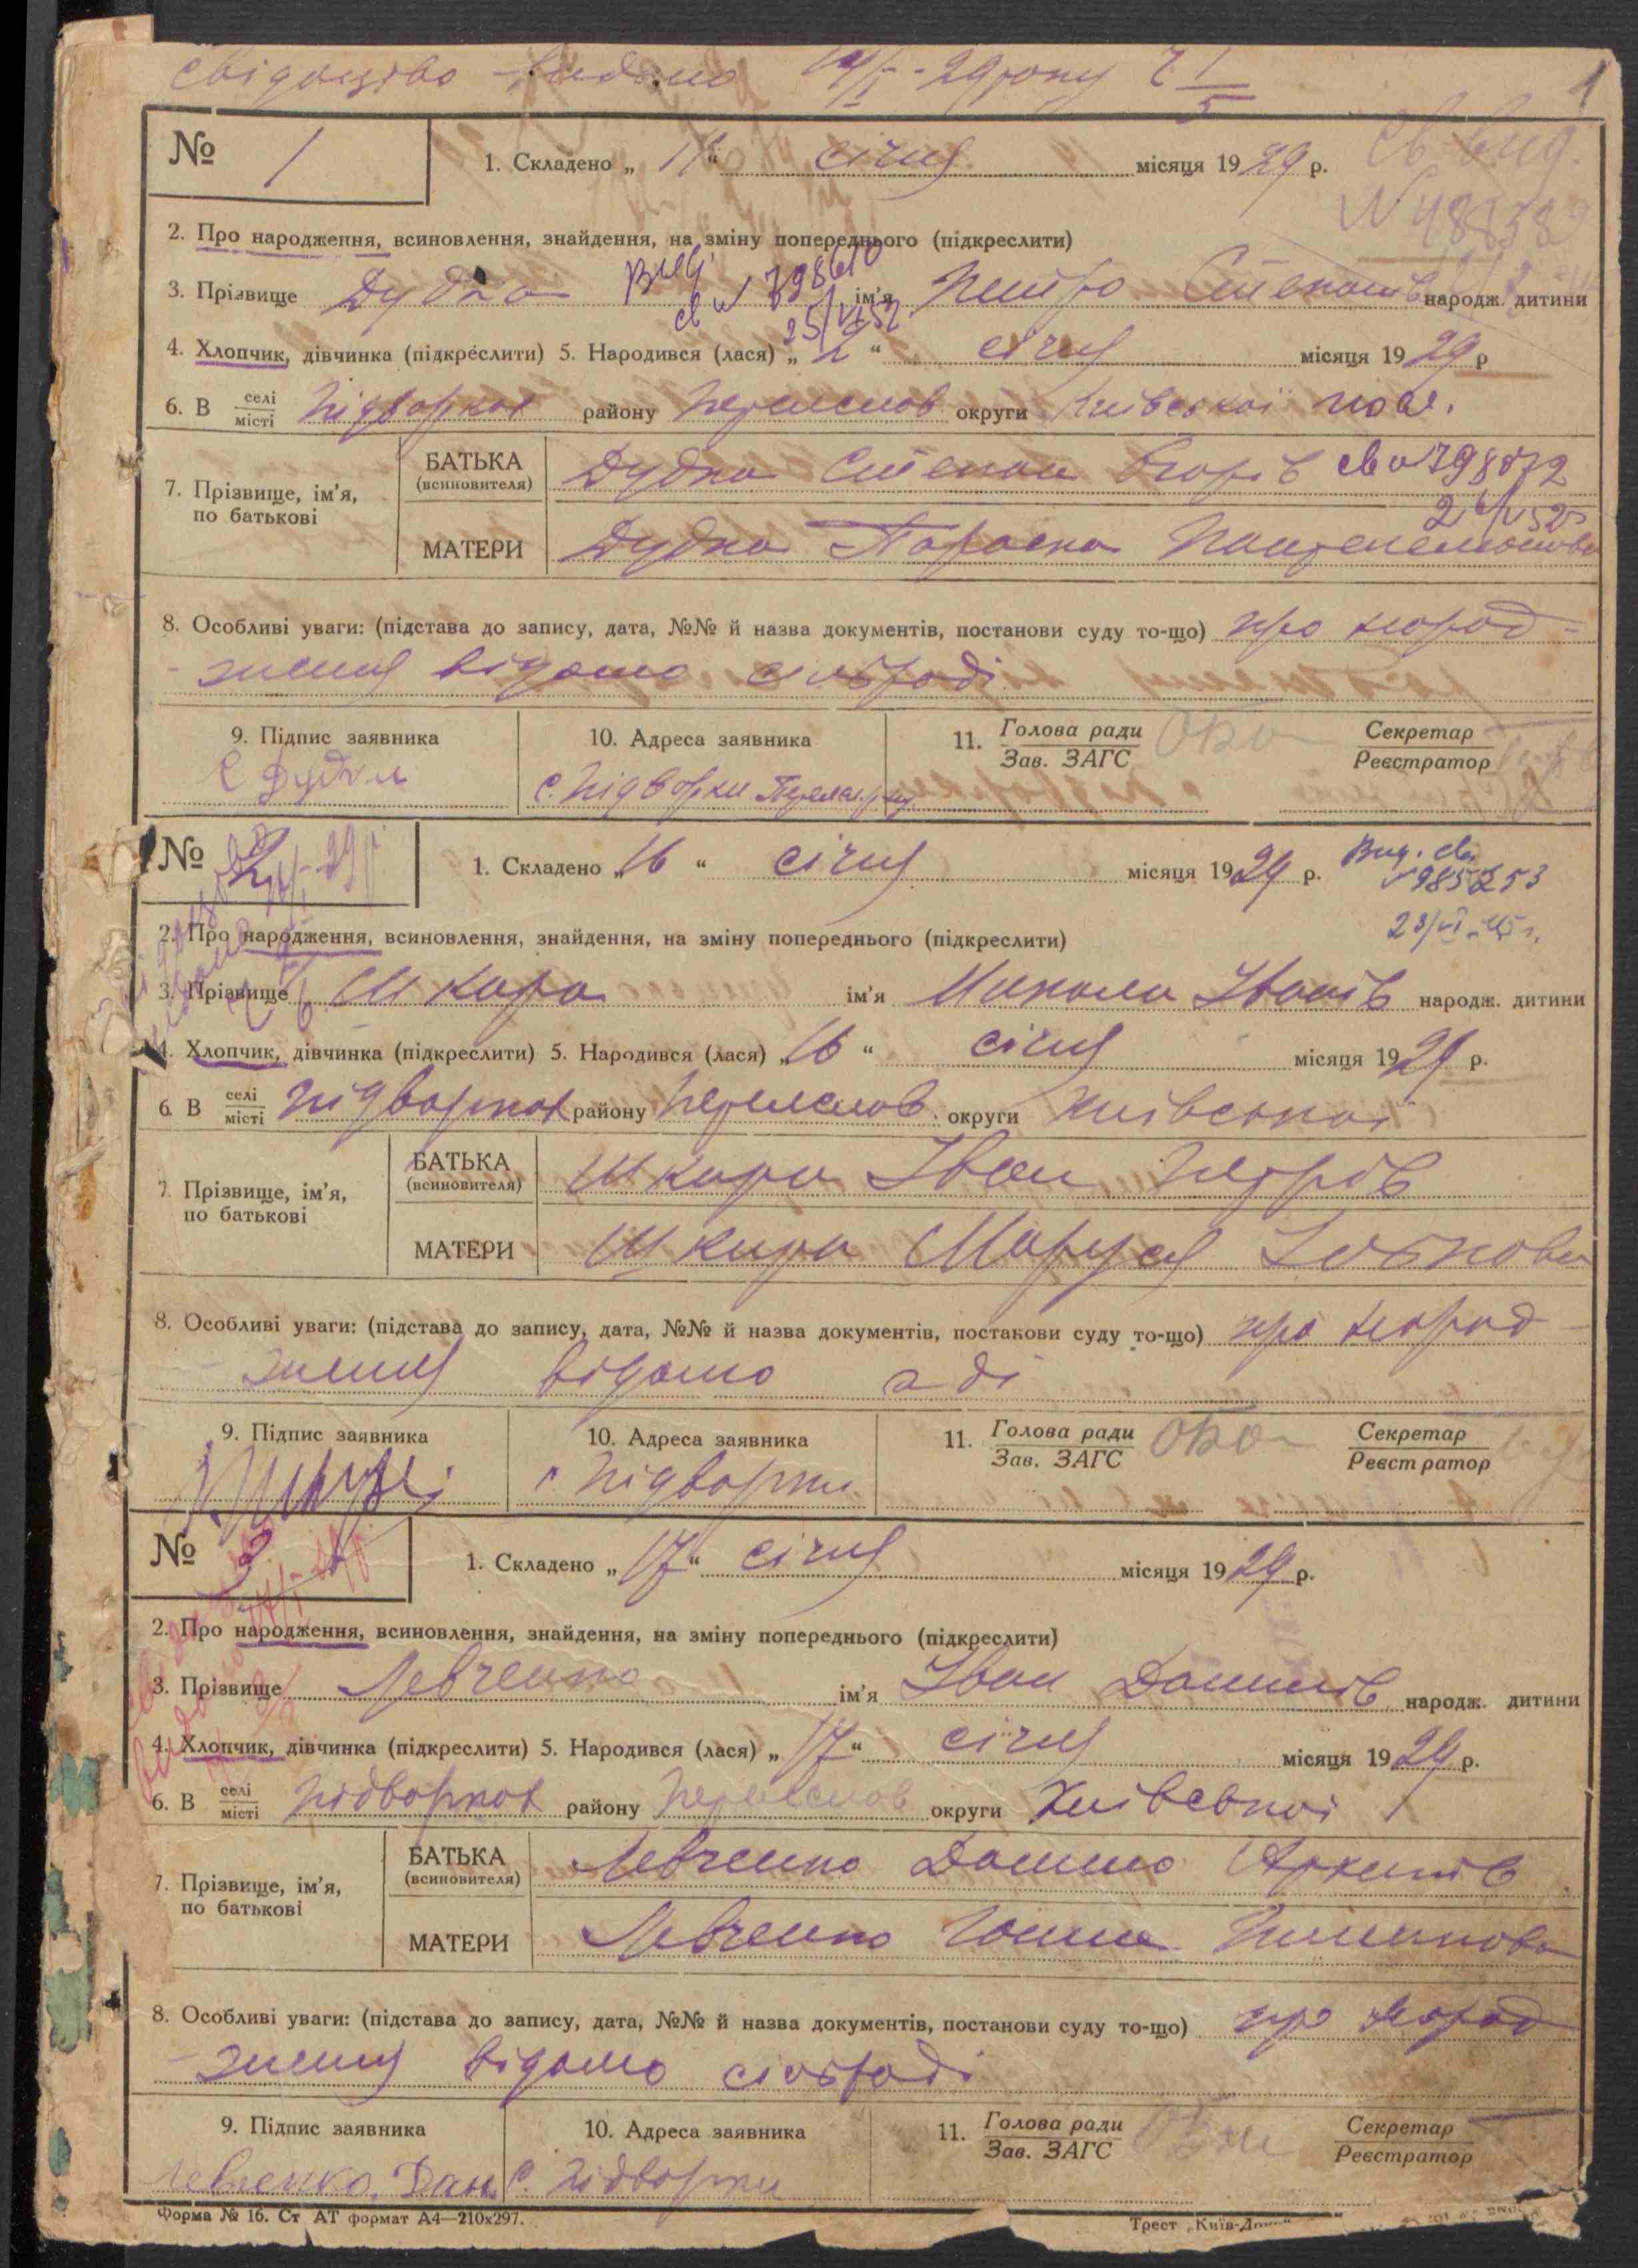 свідоцтво видано 14/I-29 року Ч 1/5
1
№ 1
1. Складено „ 14 “ січня місяця 1929 р.
Св вид.
2. Про народження, всиновлення, знайдення, на зміну попереднього (підкреслити)
3. Прізвище Дудка ім'я Петро Степанів народж. дитини
Вид. св № 798610
25/VI 52
4. Хлопчик, дівчинка (підкреслити) 5. Народився (лася) „ 2 “ січня місяця 1929 р
6. В селі/місті Підворках району Переяслов. округи Київської
7. Прізвище, ім'я, по батькові
БАТЬКА (всиновителя) Дудка Степан Єгорів
МАТЕРИ Дудка Параска
8. Особливі уваги: (підстава до запису, дата, №№ й назва документів, постанови суду то-що) про народ-
-ження відомо сільраді
9. Підпис заявника
10. Адреса заявника
11. Голова ради / Зав. ЗАГС
Секретар / Реєстратор
С Дудка
с. Підворки
№ 2
1. Складено „ 16 “ січня місяця 1929 р.
Вид. св.
№ 985253
23/VI-45 г.
2. Про народження, всиновлення, знайдення, на зміну попереднього (підкреслити)
3. Прізвище Шкира ім'я Микола Іванів народж. дитини
4. Хлопчик, дівчинка (підкреслити) 5. Народився (лася) „ 16 “ січня місяця 1929 р.
6. В селі/місті Підворках району Переяслов. округи Київської
7. Прізвище, ім'я, по батькові
БАТЬКА (всиновителя) Шкира Іван Петрів
МАТЕРИ Шкира Маруся
8. Особливі уваги: (підстава до запису, дата, №№ й назва документів, постанови суду то-що) про народ-
-ження відомо
9. Підпис заявника
10. Адреса заявника
11. Голова ради / Зав. ЗАГС
Секретар / Реєстратор
с Підворки
№ 3
1. Складено „ 17 “ січня місяця 1929 р.
2. Про народження, всиновлення, знайдення, на зміну попереднього (підкреслити)
3. Прізвище Левченко ім'я Іван Данилів народж. дитини
4. Хлопчик, дівчинка (підкреслити) 5. Народився (лася) „ 17 “ січня місяця 1929 р.
6. В селі/місті Підворках району Переяслов округи Київської
7. Прізвище, ім'я, по батькові
БАТЬКА (всиновителя) Левченко Данило Архипів
МАТЕРИ Левченко
8. Особливі уваги: (підстава до запису, дата, №№ й назва документів, постанови суду то-що) про народ
-ження відомо сільраді
9. Підпис заявника
10. Адреса заявника
11. Голова ради / Зав. ЗАГС
Секретар / Реєстратор
Левченко Дан.
с. Підворки
Форма № 16. Ст АТ формат А4—210х297.
Трест „Київ-